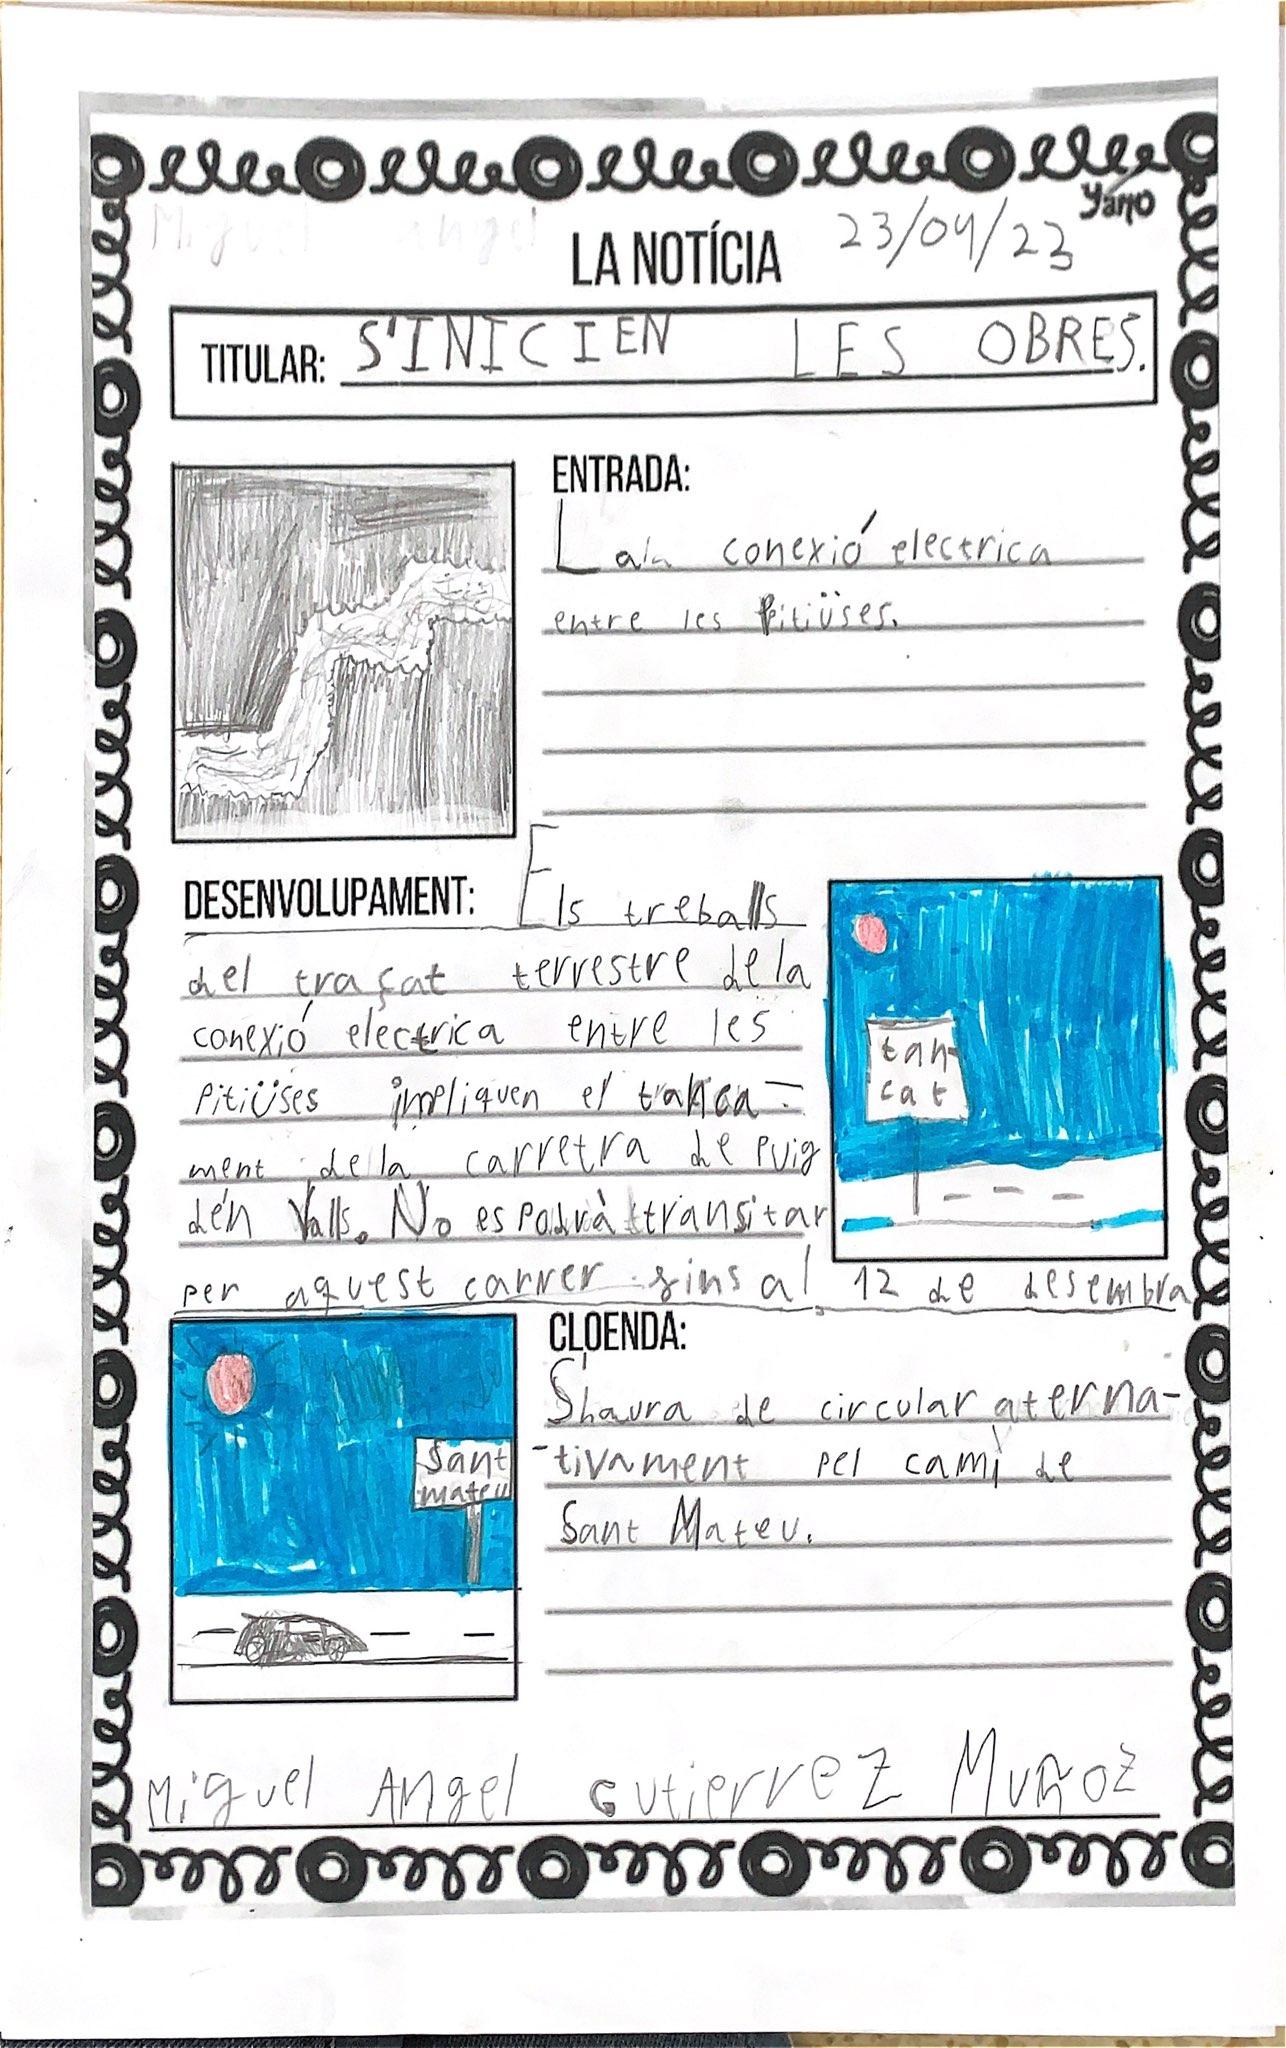 Yarro
Miguel angel
23/04/23
LA NOTÍCIA
TITULAR: S'INICIEN LES OBRES.
ENTRADA:
La conexió electrica
entre les Pitiüses.
DESENVOLUPAMENT: Els treballs
del traçat terrestre dela
conexió electrica entre les
Pitiüses impliquen el tanca-
ment de la carretra de Puig
dén Valls. No es podrà transitar
per aquest carrer fins al 12 de desembra
tan-
cat
CLOENDA:
S'haura de circular aterna-
-tivament pel camí de
Sant Mateu.
Sant
mateu
Miguel Angel Gutierrez Muñoz